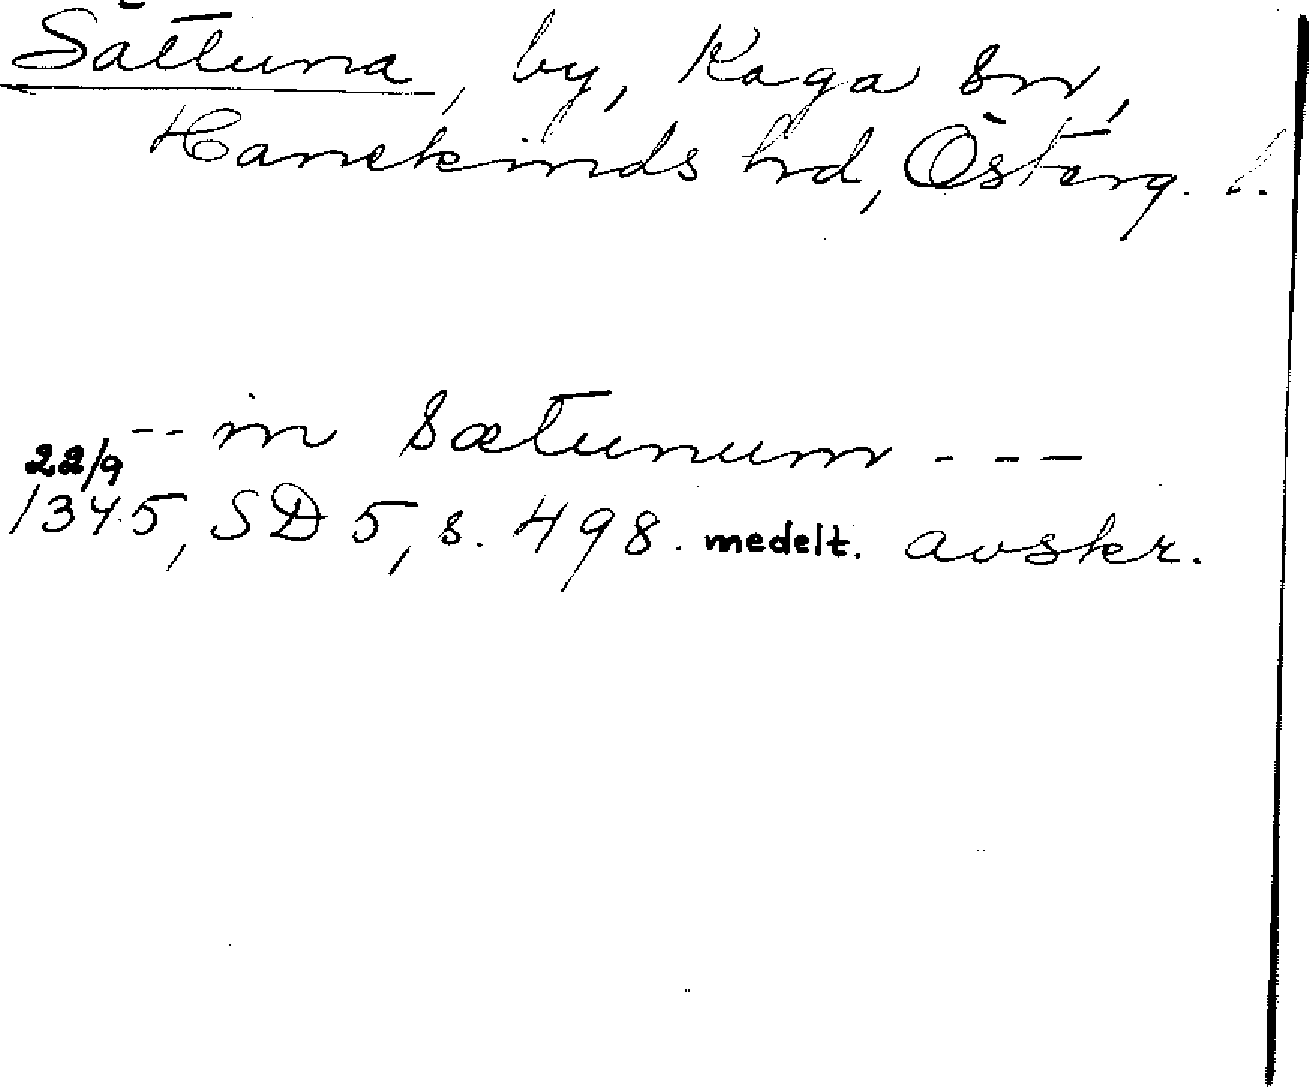 Sättuna, by, Kaga sn,
Hanekinds hd, Österg. l.
-- in Sætunum ---
22/9
1345, SD 5, s. 498. medelt. avskr.